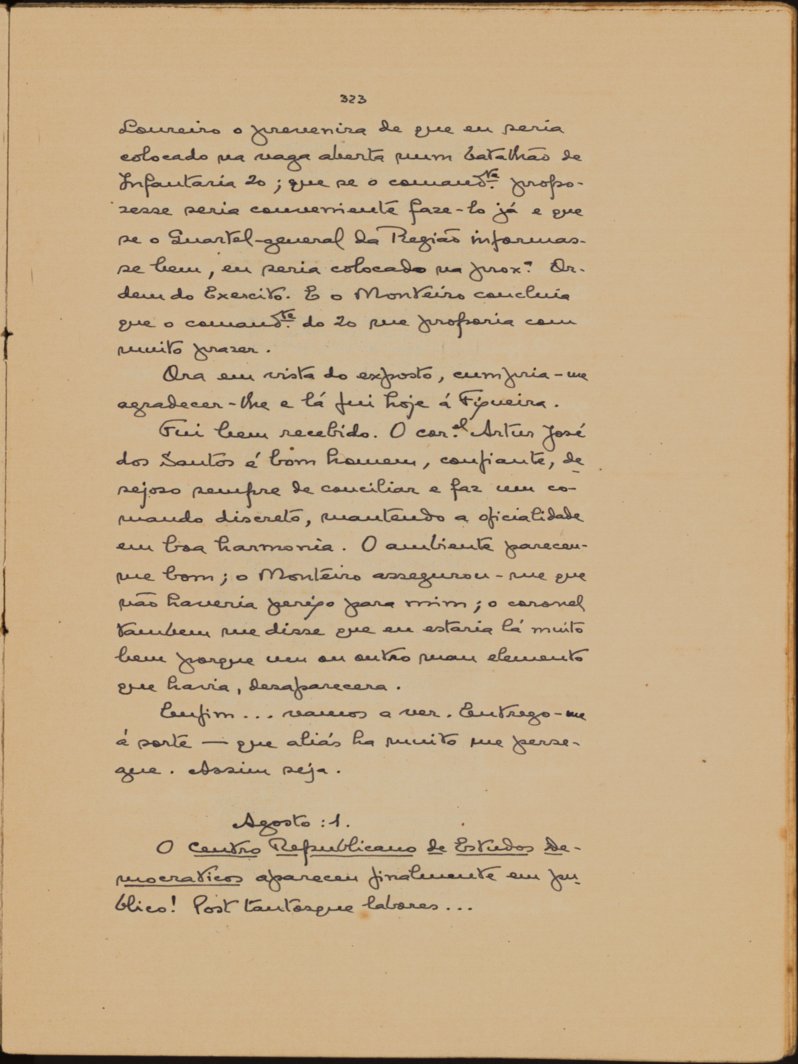 323
Loureiro o prevenira de que eu seria
colocado na vaga aberta num batalhão de
Infantaria 20; que se o comand.te propo-
sesse seria conveniente faze-lo já e que
se o Quartel-general da Região informas-
se bem, eu seria colocado na prox.ª Or-
dem do Exercito. E o Monteiro concluia
que o comand.te do 20 me proporia com
muito prazer.
Ora em vista do exposto, cumpria-me
agradecer-lhe e lá fui hoje á Figueira.
Fui bem recebido. O cor.el Artur José
dos Santos é bom homem, confiante, de-
sejoso sempre de conciliar e faz um co-
mando discreto, mantendo a oficialidade
em boa harmonia. O ambiente pareceu-
me bom; o Monteiro assegurou-me que
não haveria perigo para mim; o coronel
tambem me disse que eu estaria lá muito
bem porque um ou outro mau elemento
que havia, desaparecera.
Emfim... vamos a ver. Entrego-me
á sorte — que aliás ha muito me perse-
gue. Assim seja.
Agosto: 1.
O Centro Republicano de Estudos De-
mocraticos apareceu finalmente em pu-
blico! Post tantosque labores...